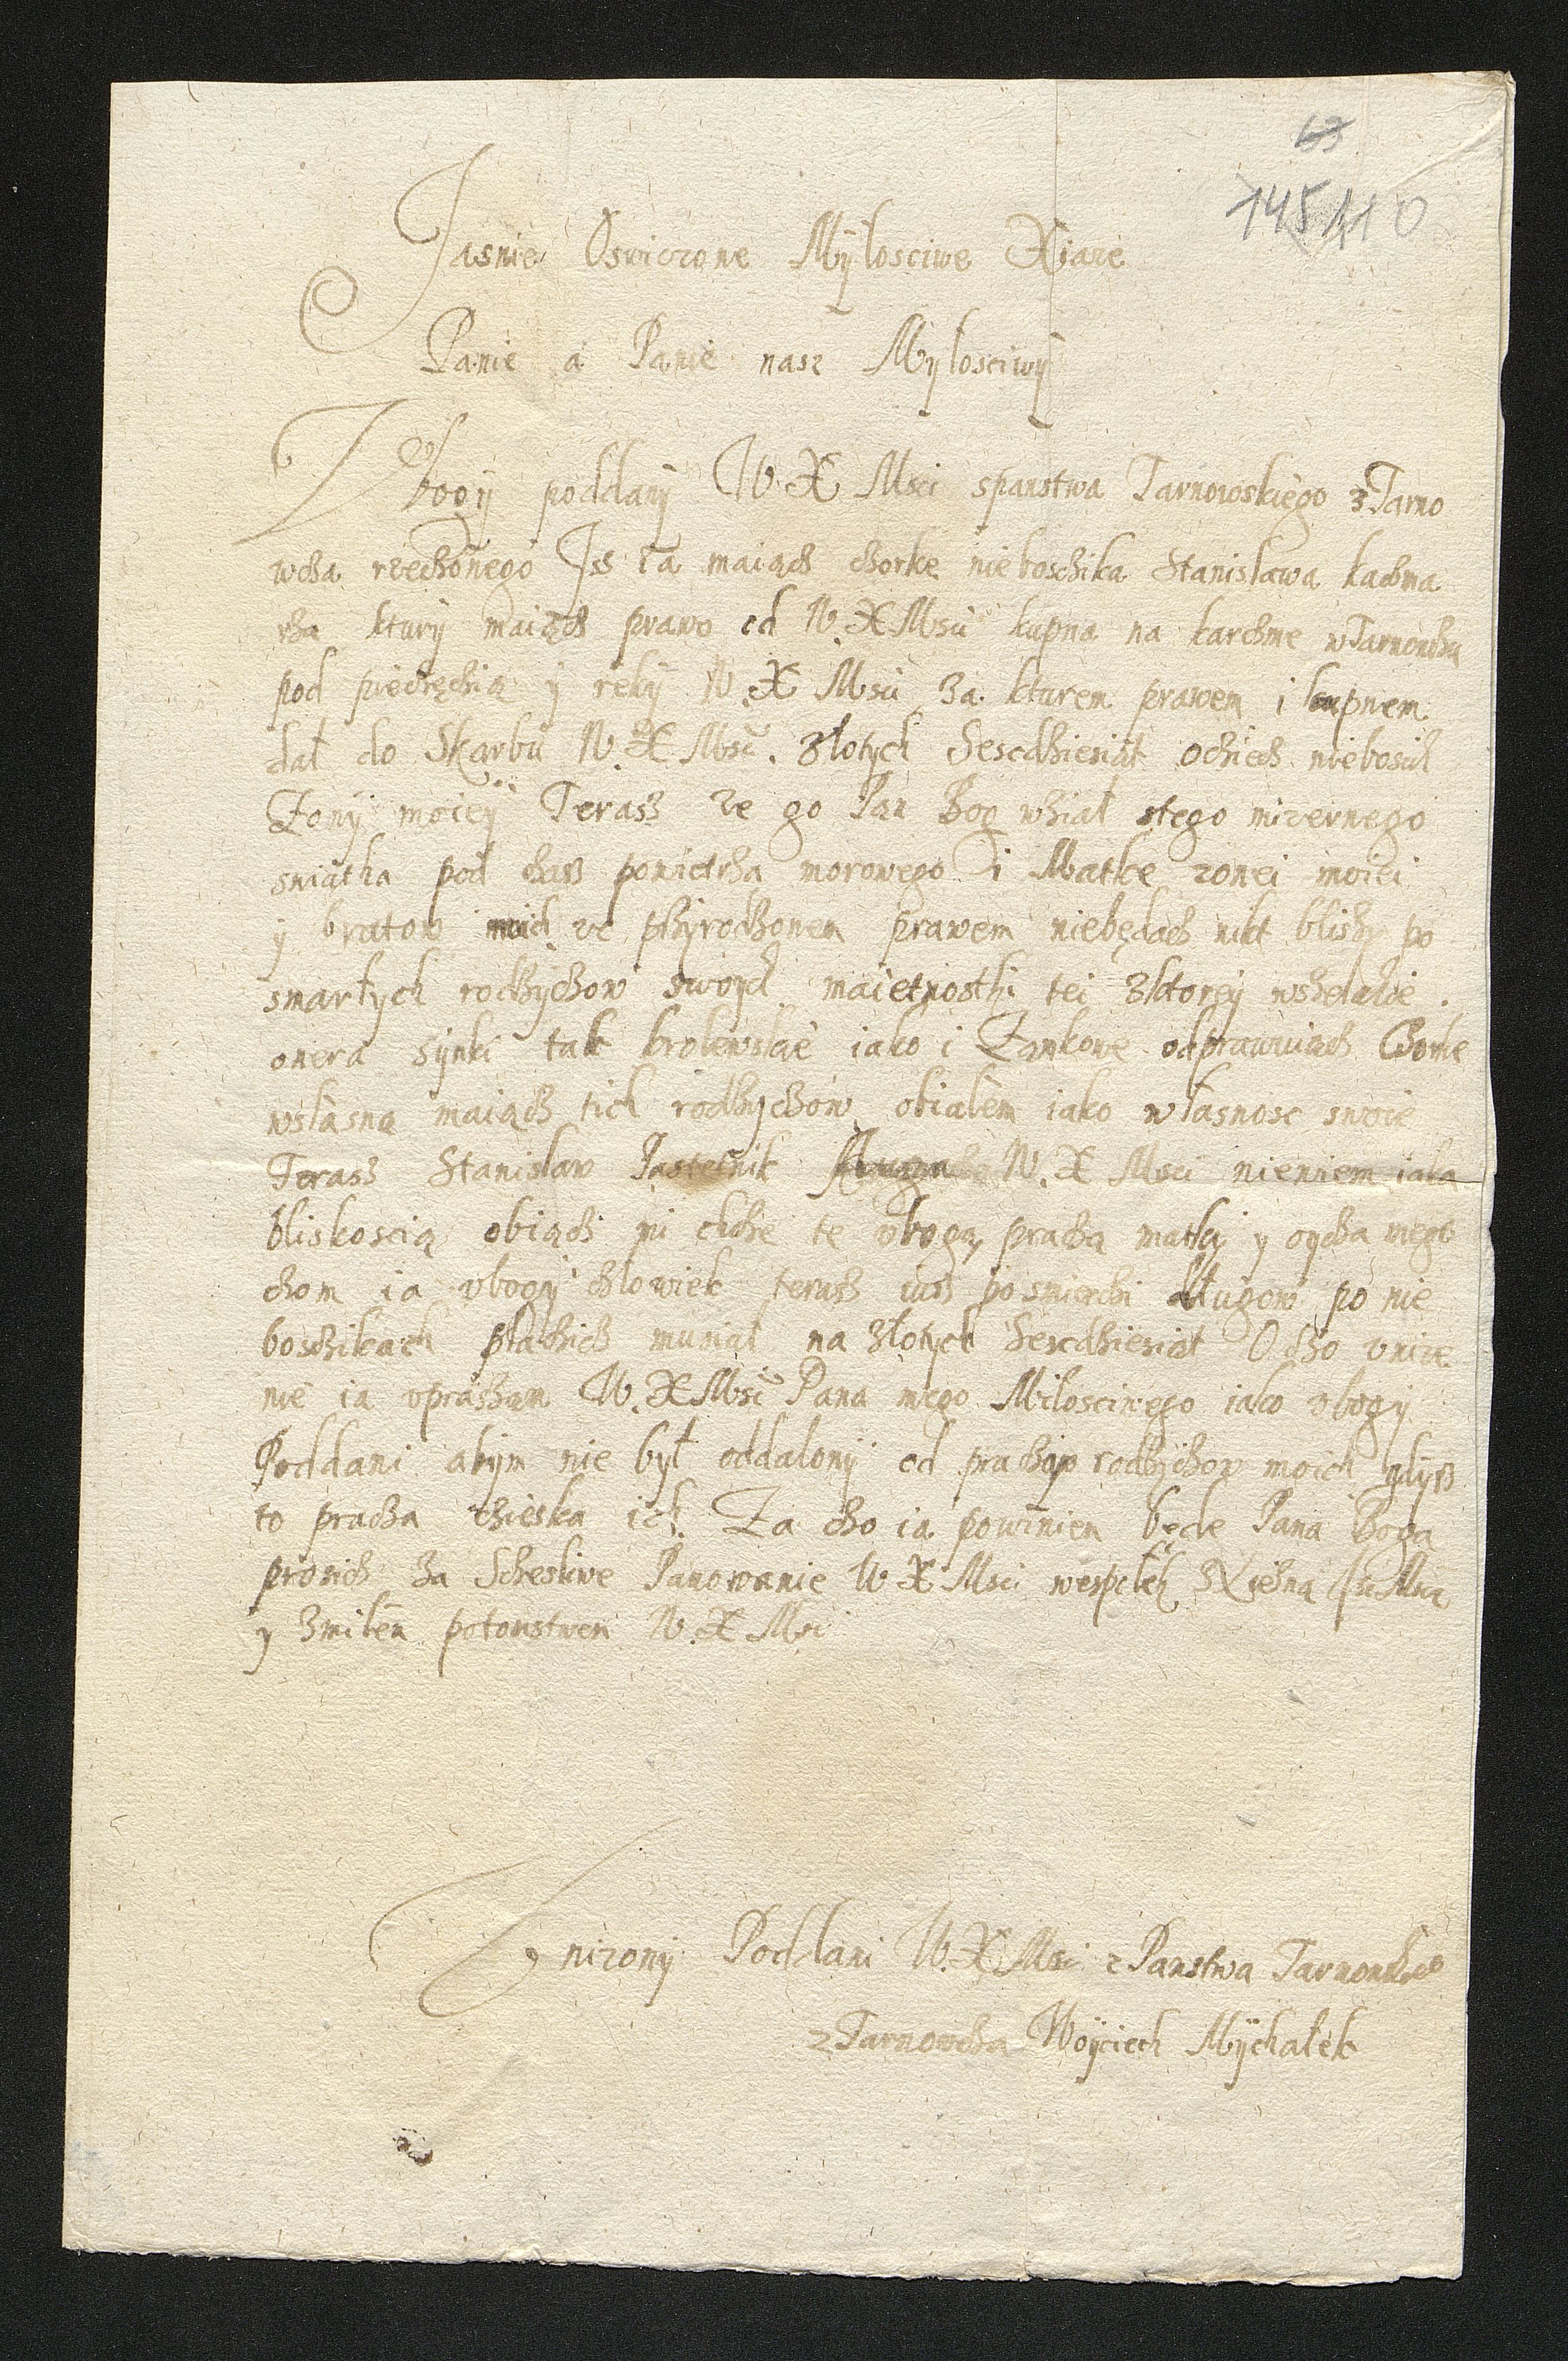 63
145 110
Jasnie Oswiczone Mylosciwe Xiaze
Panie a Panie nasz Mylosciwy
Vbogy poddany W. X Msci spanstwa Tarnowskiego z Tarno
wcha rzechonego Iss ia maiąch chorke nieboschika Stanisława kachma
rza ktury maiąch prawo od W. X Msci kupna na karchme w Tarnowchu
pod pieczęchią y reky W. X Msci za kturem prawem i kupnem
dał do Skarbu W. X Msci. Złotych Sescdhiesiąt ochiech niebosich
Zony moiey Terasz ze go Pan Bog whiał stego mizernego
swiatha pod chass powietrha morowego i Matke zonei moiei
y bratow moich ze phyrodhonem prawem niebędach nikt blishy po
smartych rodhychow swoych maietnosthi tei zktorey wshelakie
onera synki tak krolewskie iako i Zamkowe odprawuiąch Chorke
własną maiąch tich rodhychow obiałem iako własnosc swoie
Terasz Stanislaw Pastelnik W. X Msci niewiem iaka
bliskoscią obiąch mi chche te vbogą prachą matky y oycha mego
chom ia vbogy chlowiek terasz iusz po smierchi długow po nie
boschikach płachich musiał na złotych Sescdhiesiat Ocho vnize
nie ia vprasham W. X Msci Pana mego Milosciwego iako vbogy
Poddani abym nie był oddalony od prachy rodhychow moich gdysz
to pracha chieska ich. Za cho ia powinien będe Pana Boga
prosich za Schesliwe Panowanie W X Msci wespołek z Xiężną Je Mscią
y zmiłem potomstwem W. X Msci
Vnizony Poddani W. X Msci z Panstwa Tarnowskiego
z Tarnowcha Woyciech Mychałek